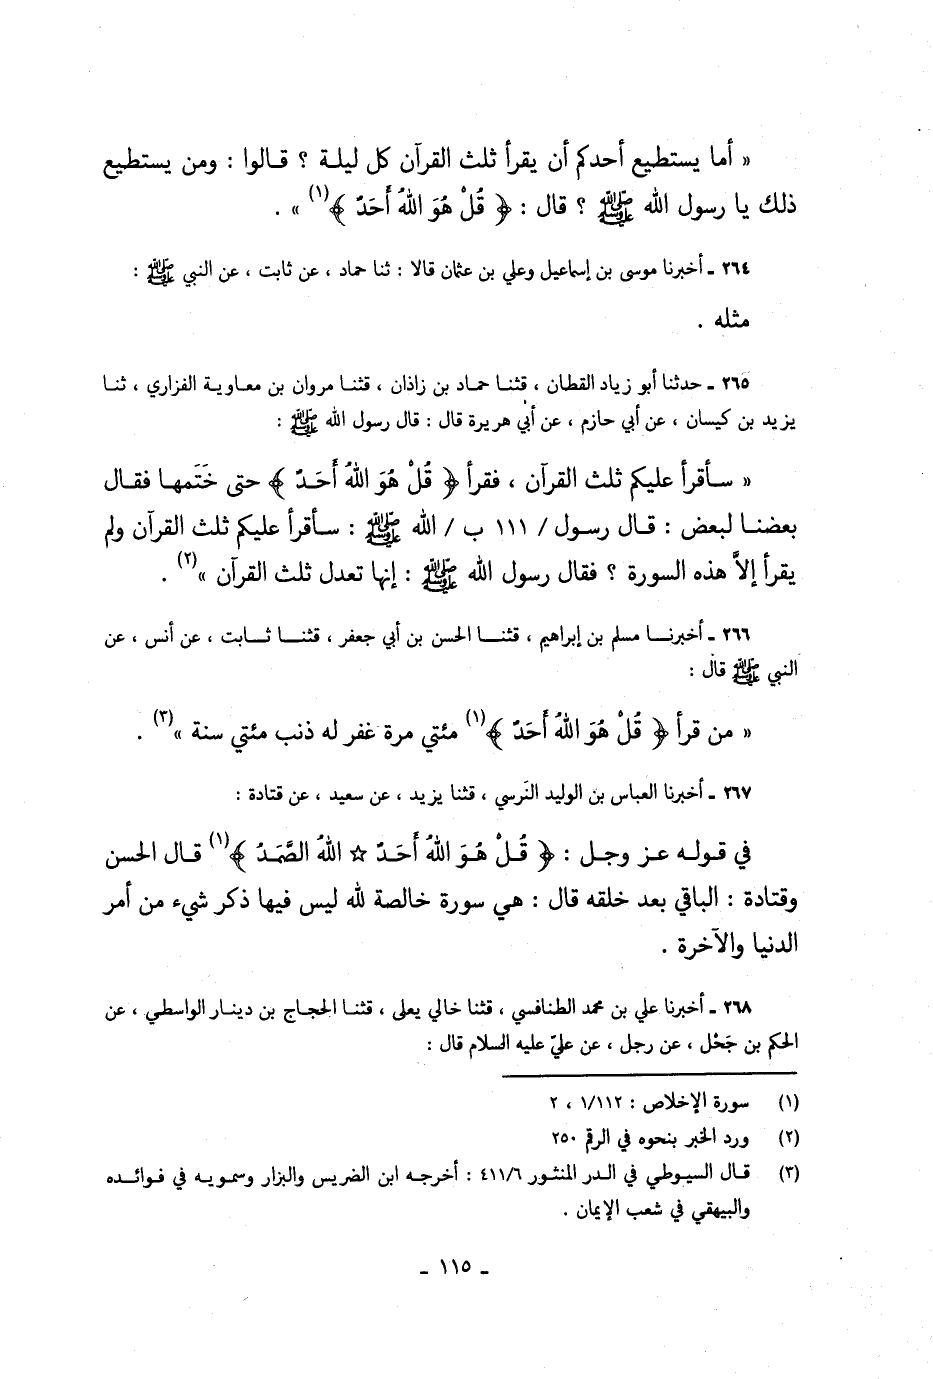 « أما يستطيع أحدكم أن يقرأ ثلث القرآن كل ليلة ؟ قالوا : ومن يستطيع
ذلك يا رسول الله ﷺ ؟ قال : ﴿ قُلْ هُوَ اللهُ أَحَدٌ ﴾(١) » .
٢٦٤ ـ أخبرنا موسى بن إسماعيل وعلي بن عثمان قالا : ثنا حماد ، عن ثابت ، عن النبي ﷺ :
مثله .
٢٦٥ ـ حدثنا أبو زياد القطان ، قثنا حماد بن زاذان ، قثنا مروان بن معاوية الفزاري ، ثنا
يزيد بن كيسان ، عن أبي حازم ، عن أبي هريرة قال : قال رسول الله ﷺ :
« سأقرأ عليكم ثلث القرآن ، فقرأ ﴿ قُلْ هُوَ اللهُ أَحَدٌ ﴾ حتى خَتَمها فقال
بعضنا لبعض : قال رسول / ١١١ ب / الله ﷺ : سأقرأ عليكم ثلث القرآن ولم
يقرأ إلاَّ هذه السورة ؟ فقال رسول الله ﷺ : إنها تعدل ثلث القرآن »(٢) .
٢٦٦ ـ أخبرنا مسلم بن إبراهيم ، قثنا الحسن بن أبي جعفر ، قثنا ثابت ، عن أنس ، عن
النبي ﷺ قال :
« من قرأ ﴿ قُلْ هُوَ اللهُ أَحَدٌ ﴾(١) مئتي مرة غفر له ذنب مئتي سنة »(٣) .
٢٦٧ ـ أخبرنا العباس بن الوليد النَرسي ، قثنا يزيد ، عن سعيد ، عن قتادة :
في قوله عز وجل : ﴿ قُلْ هُوَ اللهُ أَحَدٌ ☆ اللهُ الصَّمَدُ ﴾(١) قال الحسن
وقتادة : الباقي بعد خلقه قال : هي سورة خالصة لله ليس فيها ذكر شيء من أمر
الدنيا والآخرة .
٢٦٨ ـ أخبرنا علي بن محمد الطنافسي ، قثنا خالي يعلى ، قثنا الحجاج بن دينار الواسطي ، عن
الحكم بن جَحْل ، عن رجل ، عن عليّ عليه السلام قال :
(١) سورة الإخلاص : ١/١١٢ ، ٢
(٢) ورد الخبر بنحوه في الرقم ٢٥٠
(٣) قال السيوطي في الدر المنثور ٤١١/٦ : أخرجه ابن الضريس والبزار وسمويه في فوائده
والبيهقي في شعب الإيمان .
ـ ١١٥ ـ